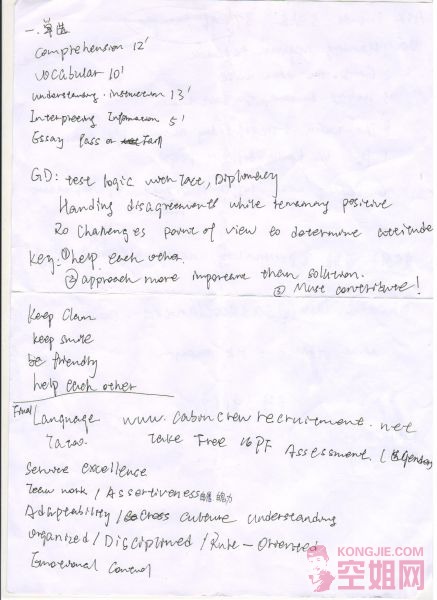 一.笔试
Comprehension 12'
vocabular 10'
understanding. instruction 13'
Interpreting Infomation 5'
Essay Pass or Fail
GD: test logic with Tact, Diplomacy
Handing disagreements while remaining positive
Ro Challenges point of view to determine attitude
Key: ①help each other.
②approach more important than solution.
③ Must contribute!
Keep Clam
keep smile
be friendly
help each other
Final Language www.cabincrewrecruitment.net
Take Free 16PF Assessment.
Service excellence
Team work / Assertiveness
Adaptability / Cross culture understanding
organized / Disciplined / Rule-Oriented
Emotional Control
KONGJIE.COM
空姐网